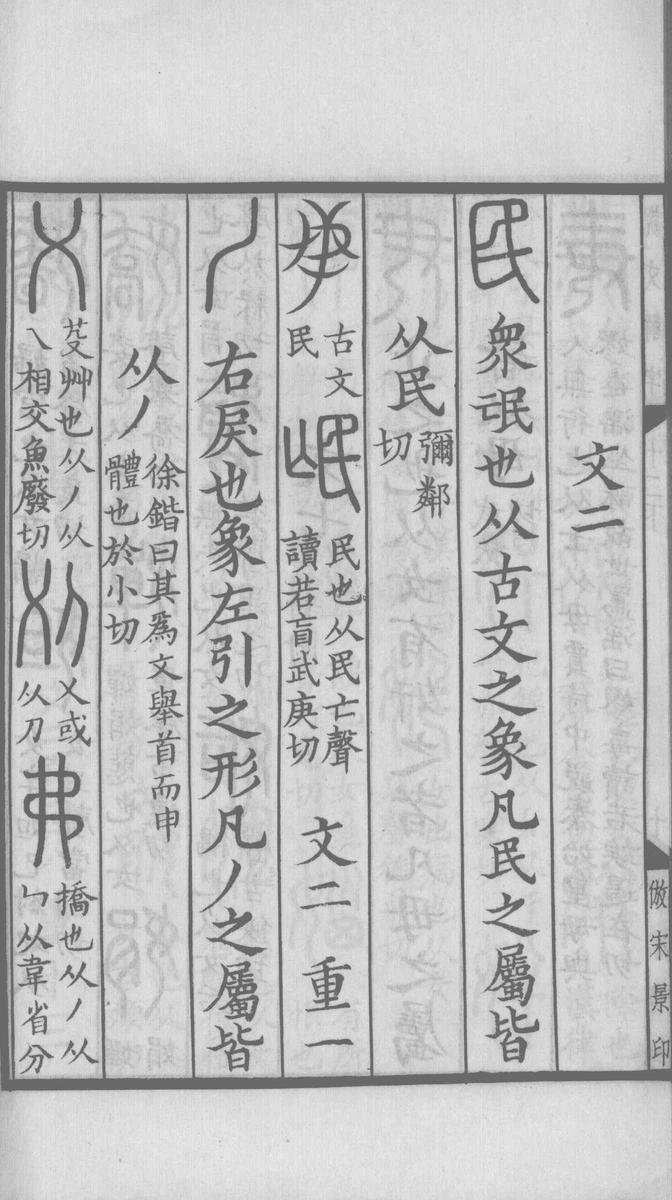 文二
民 衆氓也从古文之象凡民之屬皆
从民 彌鄰切
古文民 氓 民也从民亡聲讀若盲武庚切 文二 重一
丿 右戾也象左引之形凡丿之屬皆
从丿 徐鍇曰其爲文舉首而申體也於小切
乂 芟艸也从丿从乀相交魚廢切 刈 乂或从刀 弗 撟也从丿从乀从韋省分
倣宋景印